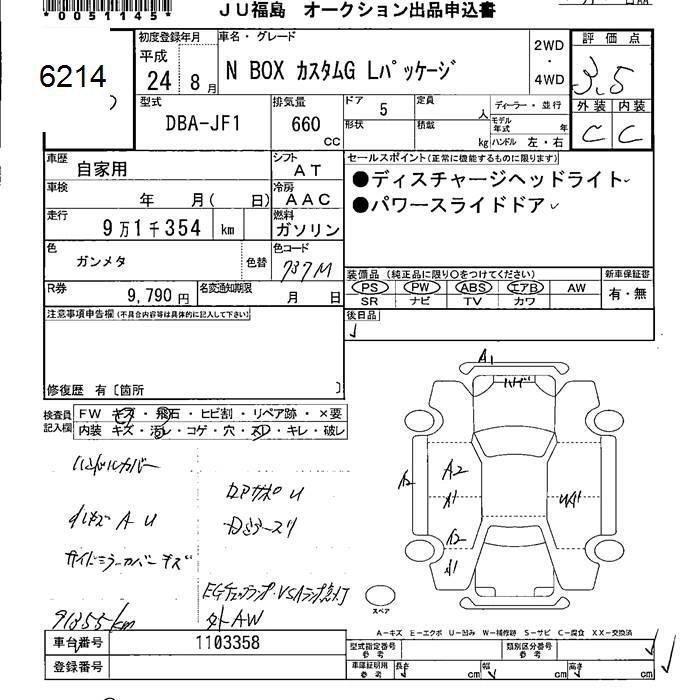 *0051145*
JU福島 オークション出品申込書
6214
初度登録年月
平成
24 8月
車名・グレード
N BOX カスタムG Lパッケージ
2WD
・
4WD
評価点
3.5
外装 内装
C C
型式
DBA-JF1
排気量
660
cc
ドア 5
定員 人
形状
積載 kg
ディーラー・並行
モデル年式 年
ハンドル 左・右
車歴
自家用
シフト
AT
セールスポイント(正常に機能するものに限ります)
●ディスチャージヘッドライト
●パワースライドドア
車検
年 月( 日)
冷房
AAC
走行
9万1千354 km
燃料
ガソリン
色
ガンメタ
色替
色コード
737M
装備品 (純正品に限り○をつけてください)
新車保証書
PS PW ABS エアB AW
有・無
SR ナビ TV カワ
R券
9,790円
名変通知期限
月 日
注意事項申告欄(不具合内容等は具体的に記入して下さい)
後日品
修復歴 有〔箇所 〕
検査員記入欄
FW キズ・飛石・ヒビ割・リペア跡・×要
内装 キズ・汚レ・コゲ・穴・スレ・キレ・破レ
ハンドルカバー
A U
サイドミラーカバーキズ
EGチェックランプ・VSAランプ点灯
91355km
社外AW
A1
A2
A2
A1
A2
A1
スペア
A-キズ E-エクボ U-凹み W-補修跡 S-サビ C-腐食 XX-交換済
車台番号 1103358
登録番号
型式指定番号 参考
類別区分番号 参考
車庫証明用 参考
長さ cm 幅 cm 高さ cm